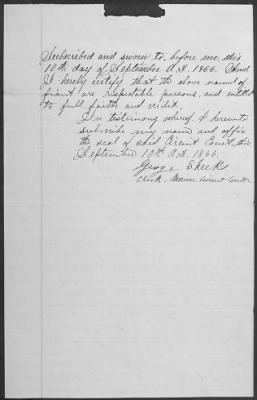 Subscribed and sworn to, before me, this
10th day of September A.D. 1866. And
I hereby certify that the above named af-
fiant are respectable persons, and entitled
to full faith and credit.
In testimony whereof I hereunto
subscribe my name and affix
the seal of said Circuit Court, this
September 10th A.D. 1866.
George Sheeks
Clerk Monroe Circuit Court